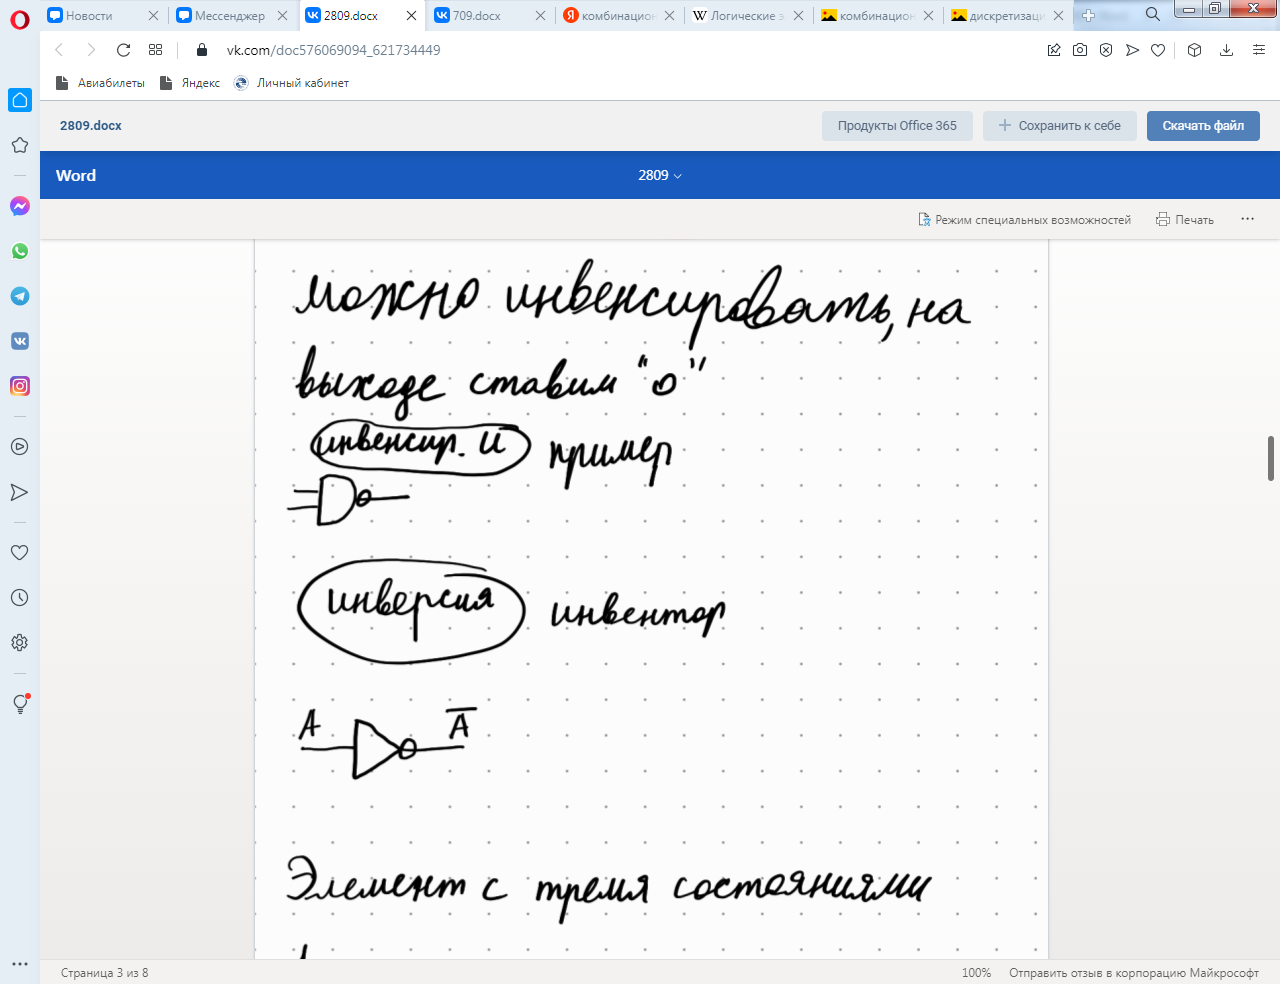 Новости
Мессенджер
2809.docx
709.docx
комбинацион
Логические э
комбинацион
дискретизаци
vk.com/doc576069094_621734449
Авиабилеты
Яндекс
Личный кабинет
2809.docx
Продукты Office 365
Сохранить к себе
Скачать файл
Word
2809
Режим специальных возможностей
Печать
можно инвенсировать, на
выходе ставим "о"
инвенсир. И пример
инверсия инвентор
A A̅
Элемент с тремя состояниями
Страница 3 из 8
100%
Отправить отзыв в корпорацию Майкрософт